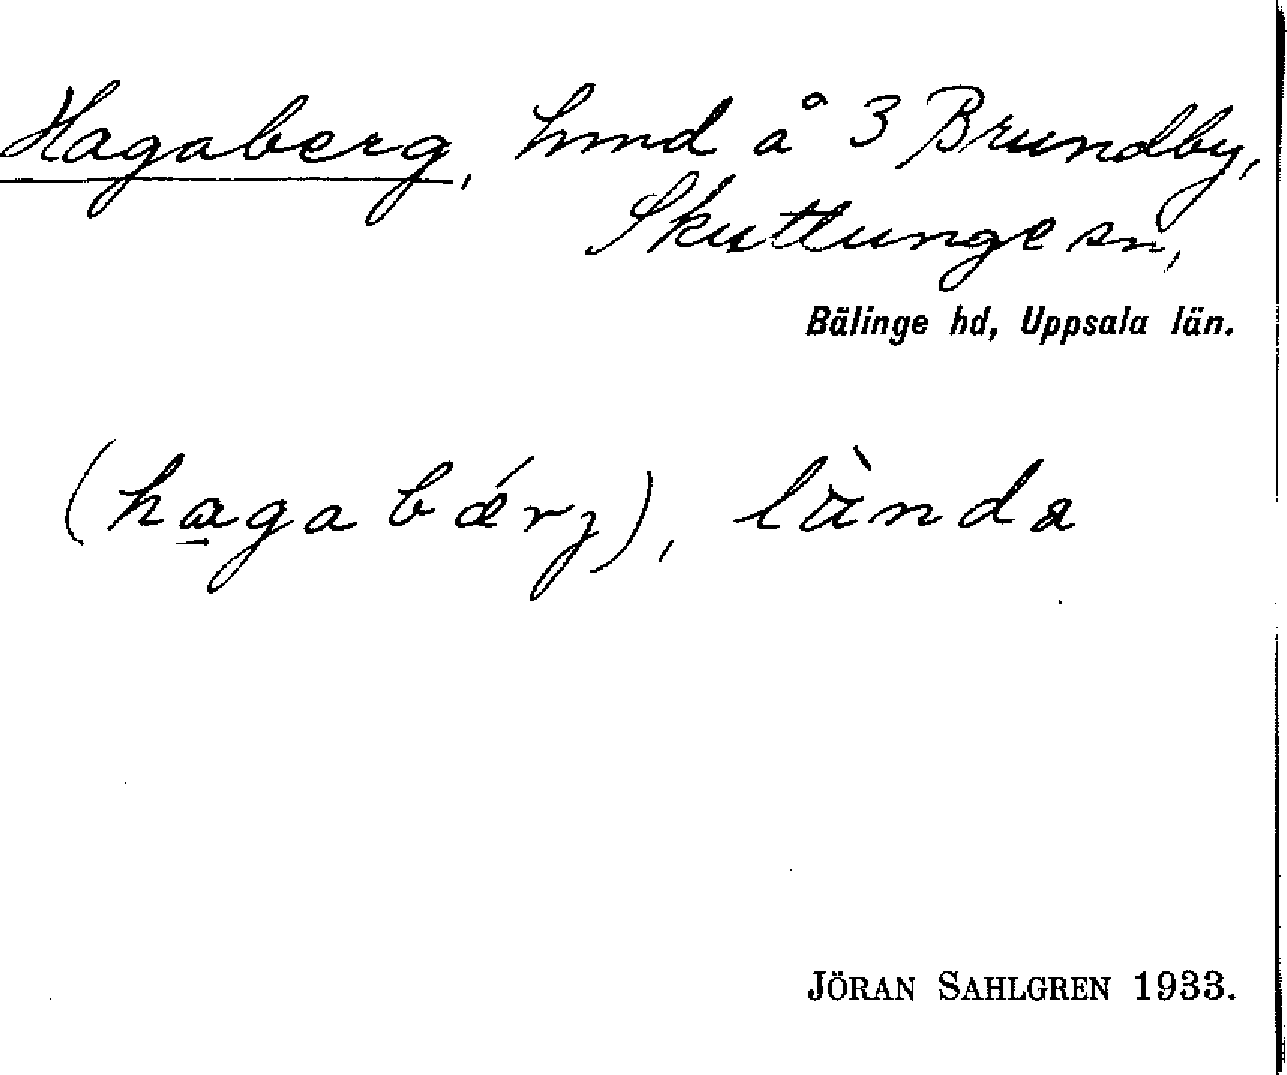 Hagaberg, hmd å 3 Brundby,
Skuttunge sn,
Bälinge hd, Uppsala län.
(hagabǽrj), lä̀nda
JÖRAN SAHLGREN 1933.